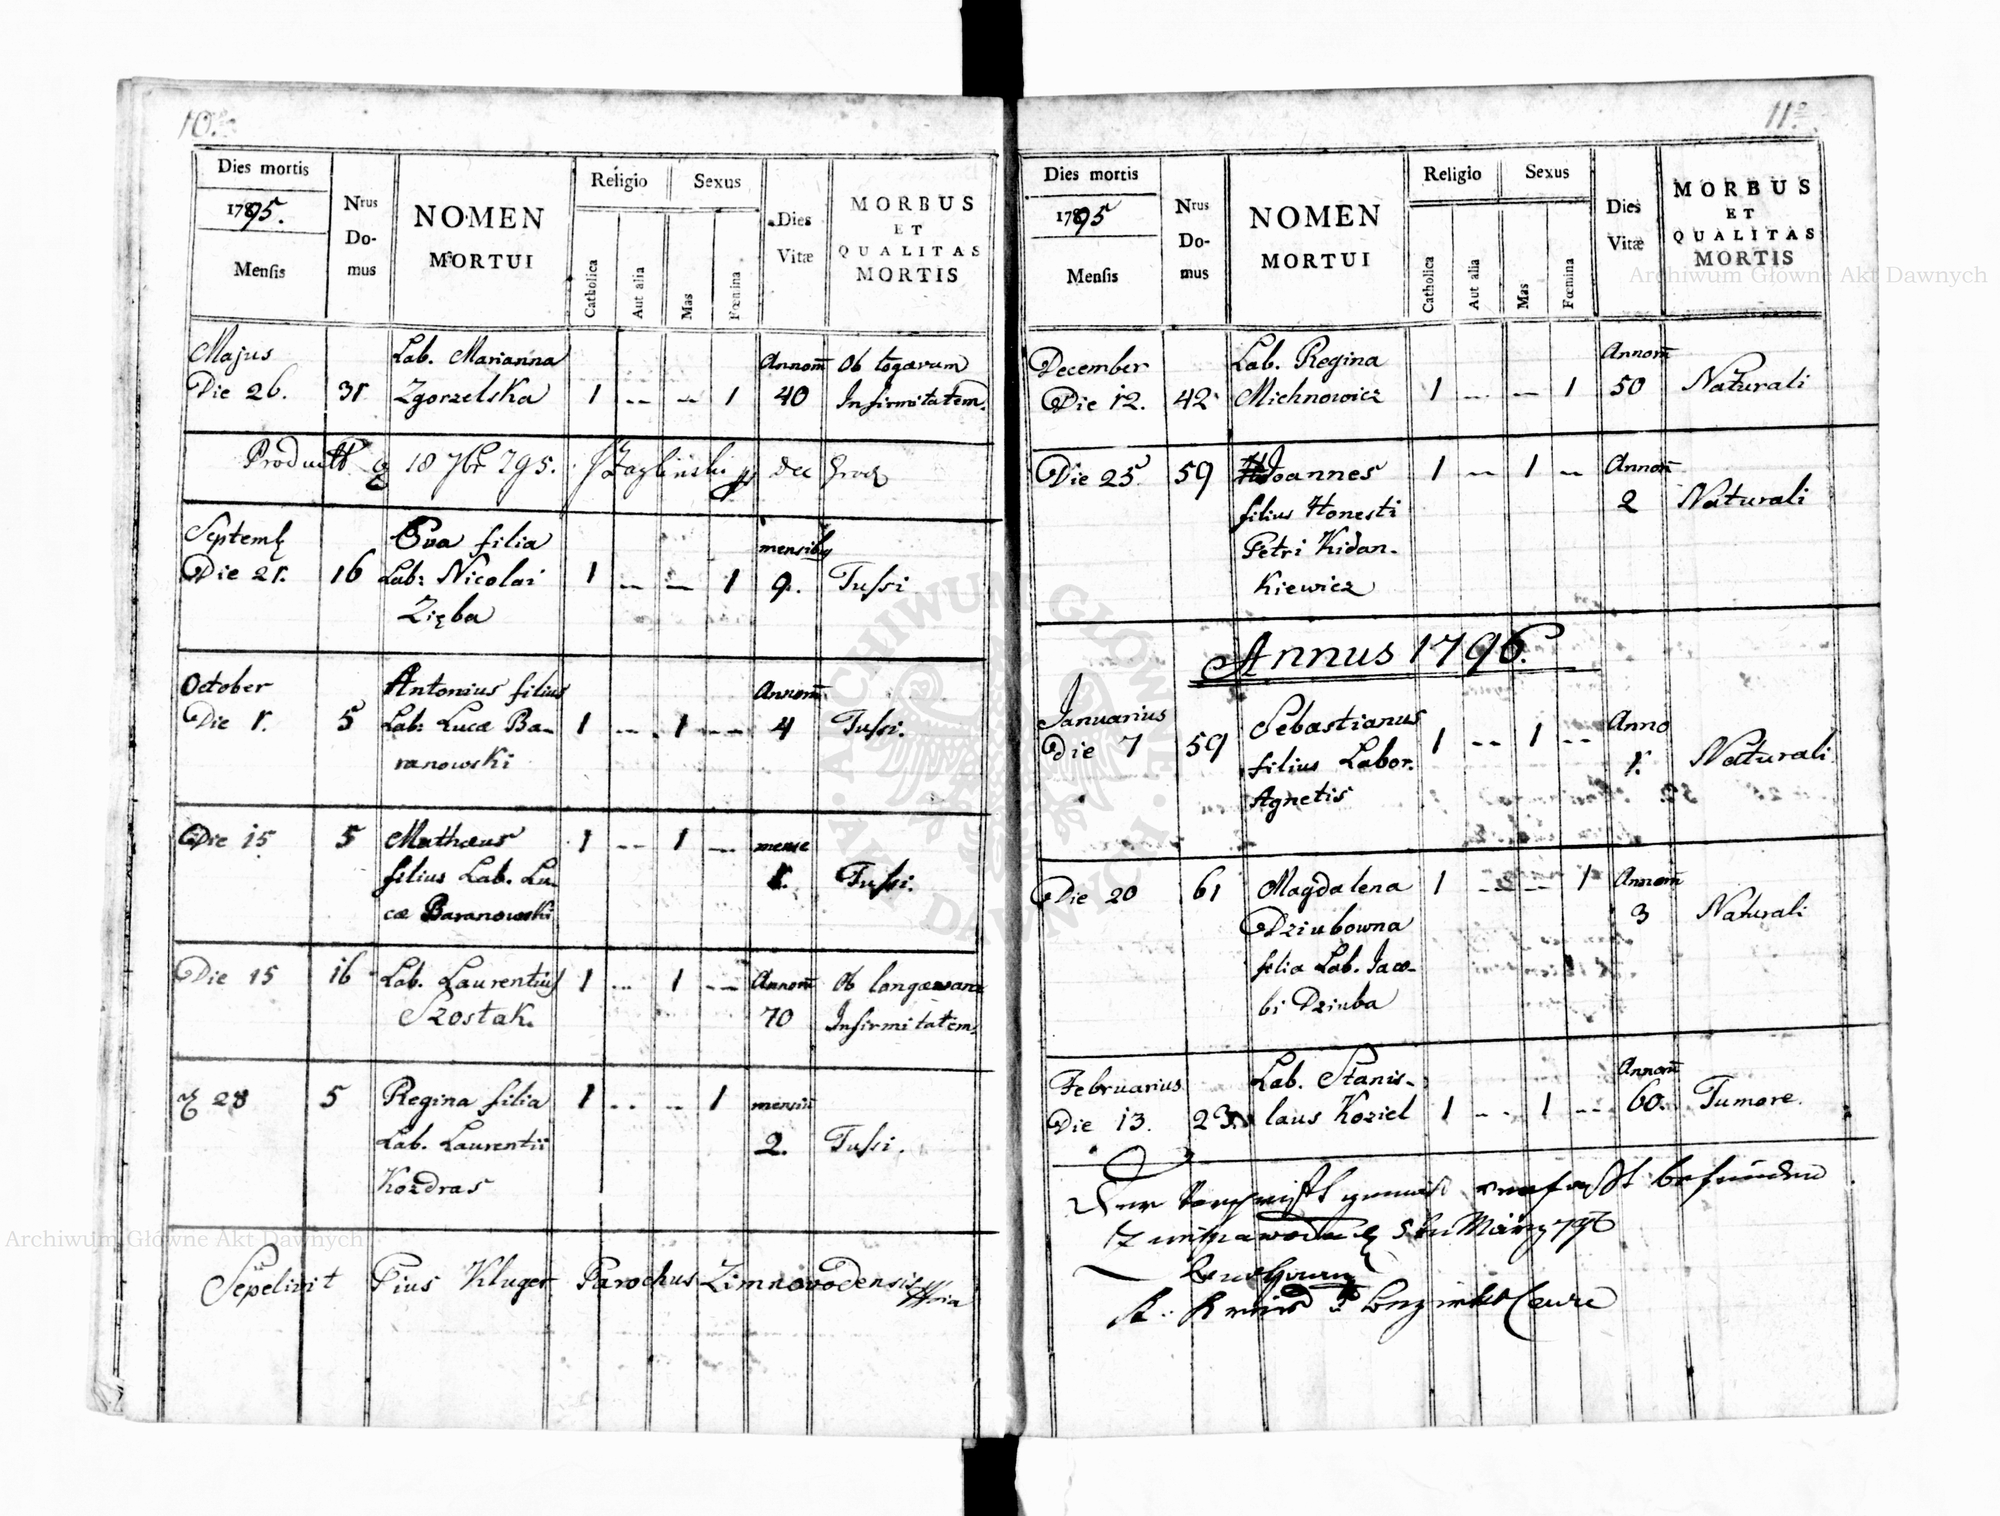 10.
Dies mortis
1795.
Mensis
Nrus
Do-
mus
NOMEN
MORTUI
Religio
Catholica
Aut alia
Sexus
Mas
Fœmina
Dies
Vitæ
MORBUS
ET
QUALITAS
MORTIS
Majus
Die 26.
31.
Lab. Marianna
Zgorzelska
1 -- -- 1
Annorū
40
Ob
Infirmitatem.
18 7br 795.
Septemb
Die 21.
16
Eva filia
Lab: Nicolai
Zięba
1 -- -- 1
mensibq
9.
Tussi
October
Die 1.
5
Antonius filius
Lab: Lucæ Ba-
ranowski
1 -- 1 --
Annorū
4
Tussi.
Die 15
5
Mathæus
filius Lab. Lu-
cæ Baranowski
1 -- 1 --
mense
1.
Tussi.
Die 15
16
Lab. Laurentius
Szostak.
1 -- 1 --
Annorū
70
Ob longævam
Infirmitatem.
28
5
Regina filia
Lab. Laurentii
Kozdras
1 -- -- 1
mensiū
2.
Tussi.
Sepelivit Pius Kluger Parochus Zimnovodensis
11.
Dies mortis
1795
Mensis
Nrus
Do-
mus
NOMEN
MORTUI
Religio
Catholica
Aut alia
Sexus
Mas
Fœmina
Dies
Vitæ
MORBUS
ET
QUALITAS
MORTIS
December
Die 12.
42
Lab. Regina
Michnowicz
1 -- -- 1
Annorū
50
Naturali
Die 25
59
Joannes
filius Honesti
Petri Kidan-
kiewicz
1 -- 1 --
Annorū
2
Naturali
Annus 1796.
Januarius
Die 7
59
Sebastianus
filius Labor.
Agnetis
1 -- 1 --
Anno
1.
Naturali
Die 20
61
Magdalena
Dziubowna
filia Lab. Jaco-
bi Dziuba
1 -- -- 1
Annorū
3
Naturali
Februarius
Die 13.
23.
Lab. Stanis-
laus Koziel
1 -- 1 --
Annorū
60.
Tumore.
Der Vorschrift gemäß verfasst befunden
5ten März 796
Archiwum Główne Akt Dawnych
Archiwum Główne Akt Dawnych
ARCHIWUM GŁÓWNE · AKT DAWNYCH ·